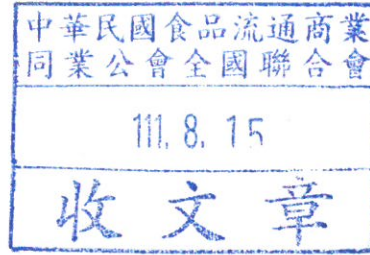 中華民國食品流通商業
同業公會全國聯合會
111. 8. 15
收文章